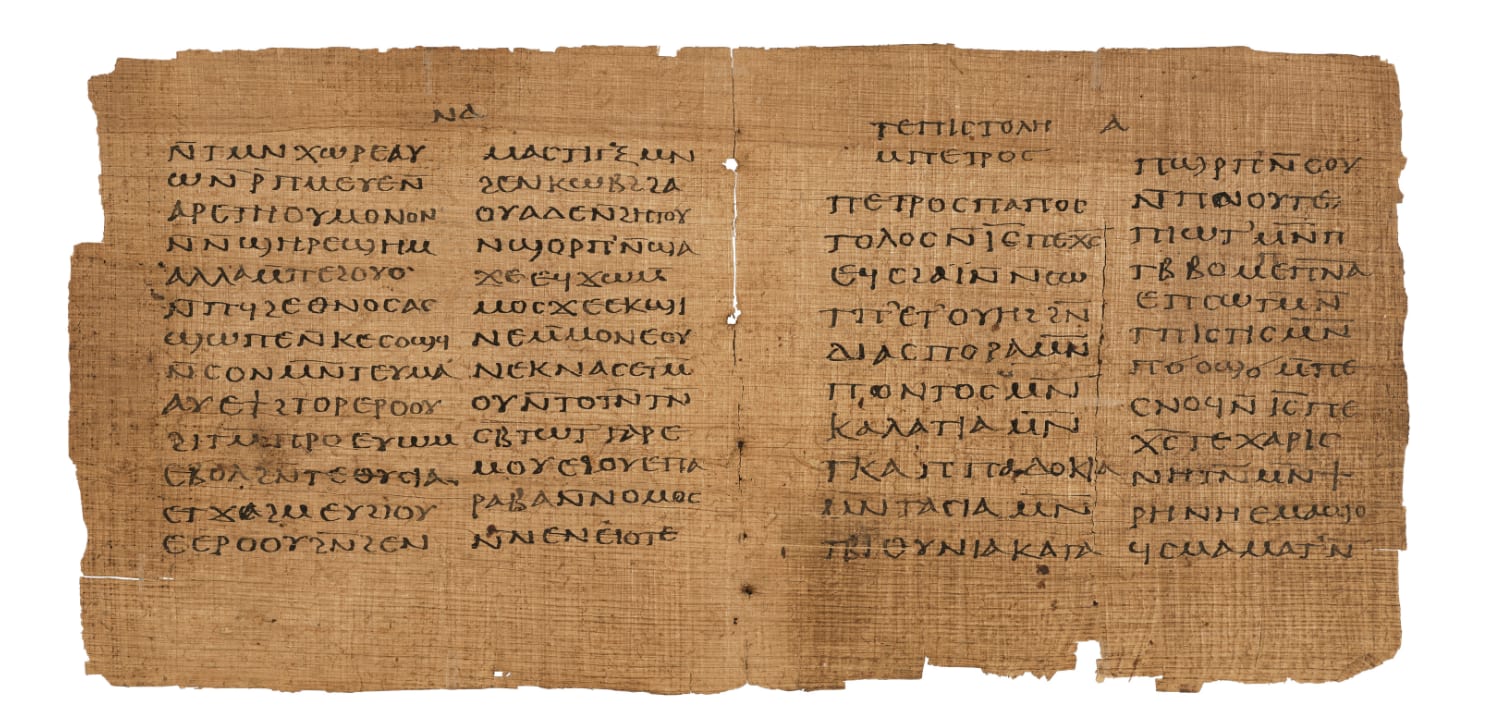 ⲛⲁ
ⲛ̄ⲧⲙⲛⲭⲱⲣⲉⲁⲩ
ⲱⲛ ⲣ̄ⲡⲙⲉⲩⲉⲛ̄
ⲁⲣⲉⲧⲏⲟⲩⲙⲟⲛⲟⲛ
ⲛ̄ⲛ̄ϣⲏⲣⲉϣⲏⲙ
ⲁⲗⲗⲁⲙ̄ⲡⲉϩⲟⲩⲟ
ⲛ̄ⲡϥϩⲉⲑⲛⲟⲥⲁⲥ
ϣⲱⲡⲉⲛ̄ⲕⲉⲥⲟϣϥ
ⲛ̄ⲥⲟⲛⲙⲛ̄ⲧⲉⲩⲙⲁ
ⲁⲩⲉϯϩⲧⲟⲣⲉⲣⲟⲟⲩ
ϩⲓⲧⲙ̄ⲡⲣⲟⲉⲩⲱⲙ
ⲉⲃⲟⲗϩⲛⲧⲉⲑⲩⲥⲓⲁ
ⲉⲧϫⲁϩⲙⲉⲩϩⲓⲟⲩ
ⲉⲉⲣⲟⲟⲩϩⲛϩⲉⲛ
ⲙⲁⲥⲧⲓⲅⲝ ⲙⲛ
ϩⲉⲛⲕⲱⲃϩϩⲁ
ⲟⲩⲁⲗⲉⲛ̄ϩⲏⲧⲟⲩ
ⲛϣⲟⲣⲡⲛ̄ϣⲁ
ϫⲉⲉϥϫⲱⲙ̄
ⲙⲟⲥϫⲉⲉⲕϣⲓ
ⲛⲉⲙ̄ⲙⲟⲛⲉⲟⲩ
ⲛⲉⲕⲛⲁⲥⲉⲧⲙ̄
ⲟⲩⲛ̄ⲧⲟⲧⲛ̄ⲧⲛ̄
ⲥⲃⲧⲱⲧ ⲅⲁⲣⲉ
ⲙⲟⲩⲉϩⲟⲩⲉⲡⲁ
ⲣⲁⲃⲁⲛⲛⲟⲙⲟⲥ
ⲛ̄ⲛⲉⲛⲉⲓⲟⲧⲉ
ⲧⲉⲡⲓⲥⲧⲟⲗⲏ ⲁ
ⲙⲡⲉⲧⲣⲟⲥ
ⲡⲉⲧⲣⲟⲥⲡⲁⲡⲟⲥ
ⲧⲟⲗⲟⲥⲛ̄ⲓ̄ⲥ̄ⲡⲉⲭ̄ⲥ̄
ⲉϥⲥϩⲁⲓ̈ⲛ̄ⲛⲥⲱ
ⲧⲡ ⲉⲧⲟⲩⲏϩϩⲛ̄
ⲇⲓⲁⲥⲡⲟⲣⲁⲙⲛ̄
ⲡⲟⲛⲧⲟⲥⲙⲛ̄
ⲕⲁⲗⲁⲧⲓⲁⲙⲛ̄
ⲧⲕⲁⲡⲡⲁⲇⲟⲕⲓⲁ
ⲙⲛⲧⲁⲥⲓⲁ ⲙⲛ̄
ⲧⲃⲓⲑⲩⲛⲓⲁⲕⲁⲧⲁ
ⲡϣⲣⲡⲛ̄ⲥⲟⲩ
ⲛ̄ⲡⲛⲟⲩⲧⲉ
ⲡⲓⲱⲧ ⲙⲛ̄ⲡ
ⲧⲃⲃⲟⲙⲡⲉⲡ̄ⲛ̄ⲁ̄
ⲉⲡⲥⲱⲧⲙ̄ⲛ̄
ⲧⲡⲓⲥⲧⲓⲥⲙⲛ̄
ⲡϭⲟϣϭ ⲙ̄ⲡⲉ
ⲥⲛⲟϥⲛ̄ⲓ̄ⲥ̄ⲡⲉ
ⲭ̄ⲥ̄ⲧⲉⲭⲁⲣⲓⲥ
ⲛⲏⲧⲛ̄ⲙⲛϯ
ⲣⲏⲛⲏⲉⲙⲁϣⲟ
ϥⲥⲙⲁⲙⲁⲧ ⲛ̄